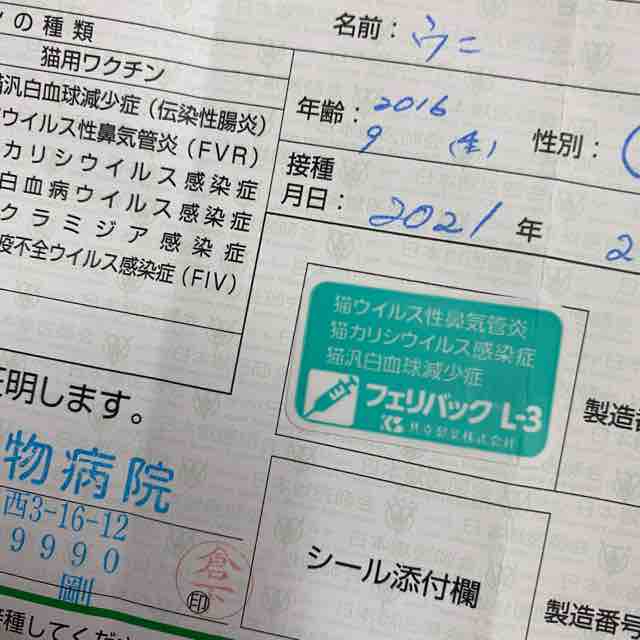 ンの種類
猫用ワクチン
猫汎白血球減少症（伝染性腸炎）
ウイルス性鼻気管炎（FVR）
カリシウイルス感染症
白血病ウイルス感染症
クラミジア感染症
疫不全ウイルス感染症（FIV）
証明します。
物病院
西3-16-12
9990
倉
印
接種してくだ
名前：ウニ
年齢：2016
9 (生)
性別：
接種
月日：2021年 2
猫ウイルス性鼻気管炎
猫カリシウイルス感染症
猫汎白血球減少症
フェリバック L-3
共立製薬株式会社
製造番
シール添付欄
製造番号